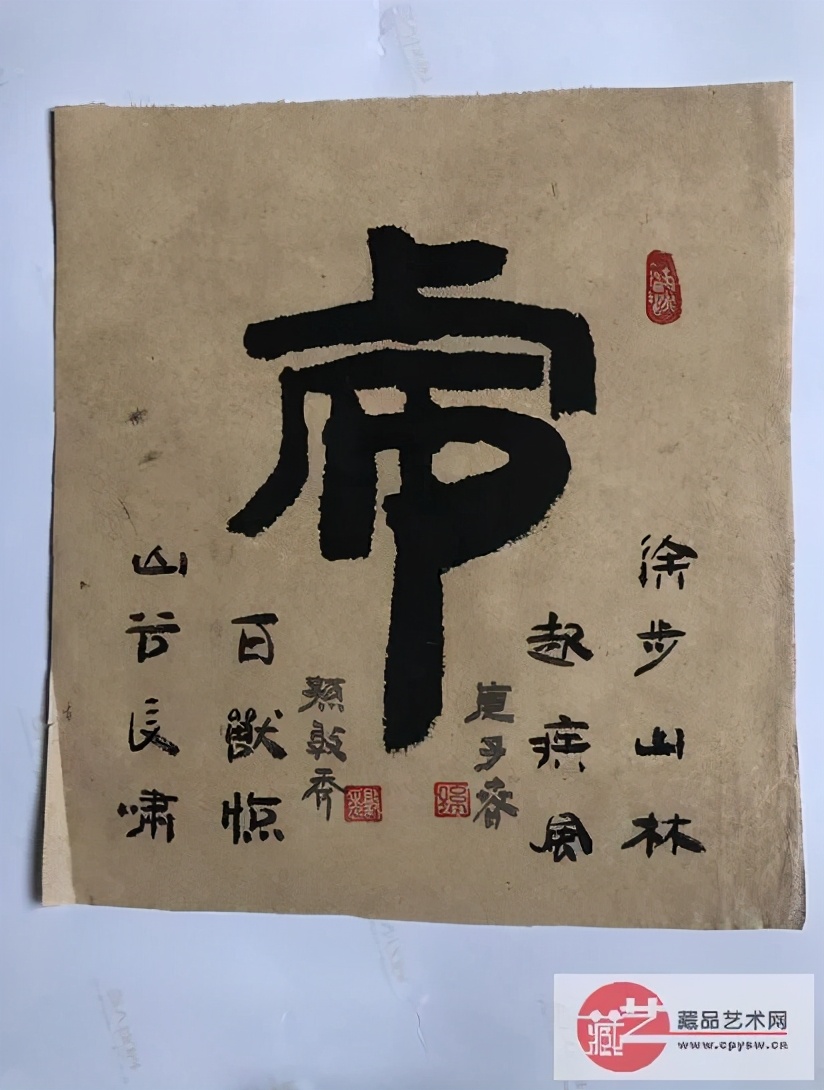 虎
徐步山林
起疾風
庚子春
孫敦秀
山谷長嘯
百獸惊
藏艺
藏品艺术网
www.cpysw.cn